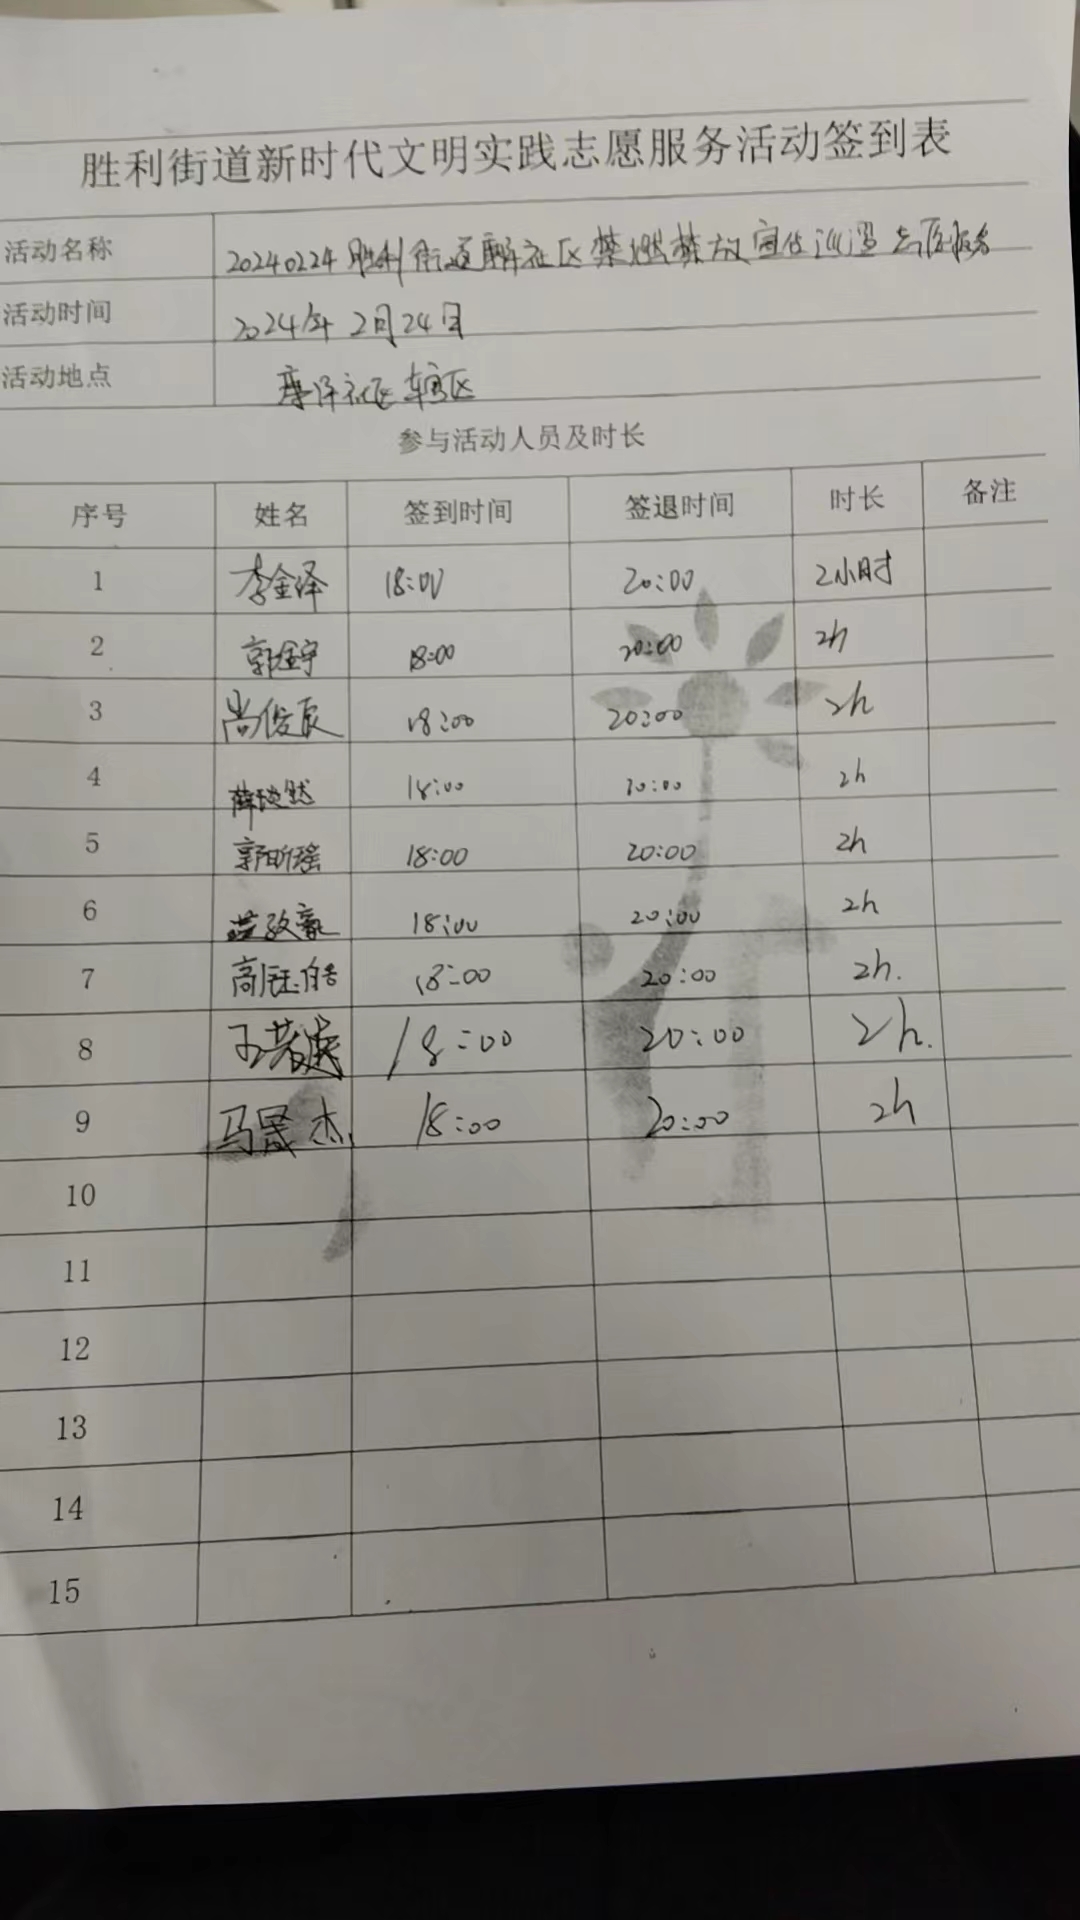 胜利街道新时代文明实践志愿服务活动签到表
活动名称 20240224胜利街道社区禁燃禁放宣传巡逻志愿服务
活动时间 2024年2月24日
活动地点 康泽社区辖区
参与活动人员及时长
序号 姓名 签到时间 签退时间 时长 备注
1 李金泽 18:00 20:00 2小时
2 郭金宇 18:00 20:00 2h
3 尚俊辰 18:00 20:00 2h
4 薛 18:00 20:00 2h
5 郭昕瑶 18:00 20:00 2h
6 18:00 20:00 2h
7 高 18:00 20:00 2h.
8 王 18:00 20:00 2h.
9 马晟杰 18:00 20:00 2h
10
11
12
13
14
15